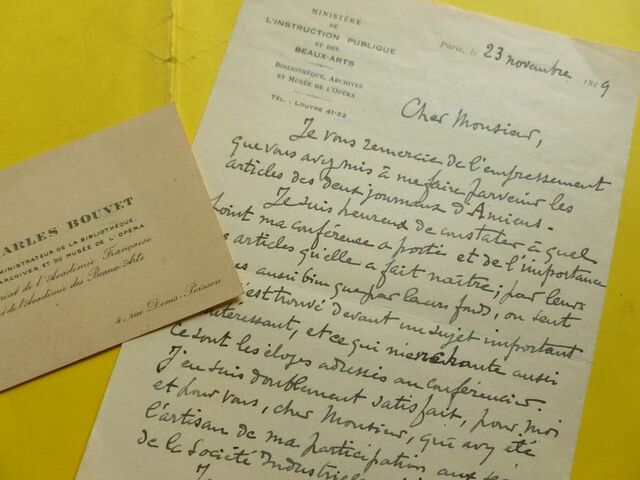 MINISTÈRE
DE
L'INSTRUCTION PUBLIQUE
ET DES
BEAUX-ARTS
BIBLIOTHÈQUE, ARCHIVES
ET MUSÉE DE L'OPÉRA
TÉL. : LOUVRE 41-32
Paris, le 23 novembre 1929
Cher Monsieur,
Je vous remercie de l'empressement
que vous avez mis à me faire parvenir les
articles des deux journaux d'Amiens.
Je suis heureux de constater à quel
point ma conférence a porté et de l'importance
articles qu'elle a fait naître; par leurs
aussi bien que par leurs fond, on sent
s'est trouvé devant un sujet important
intéressant, et ce qui aussi
ce sont les éloges adressés au conférencier.
J'en suis doublement satisfait, pour moi
et pour vous, cher Monsieur, qui avez été
l'artisan de ma participation aux
de la Société Industriel
ARLES BOUVET
MINISTRATEUR DE LA BIBLIOTHÈQUE,
ARCHIVES ET DU MUSÉE DE L'OPÉRA
de l'Académie Française
de l'Académie des Beaux-Arts
4, rue Denis-Poisson